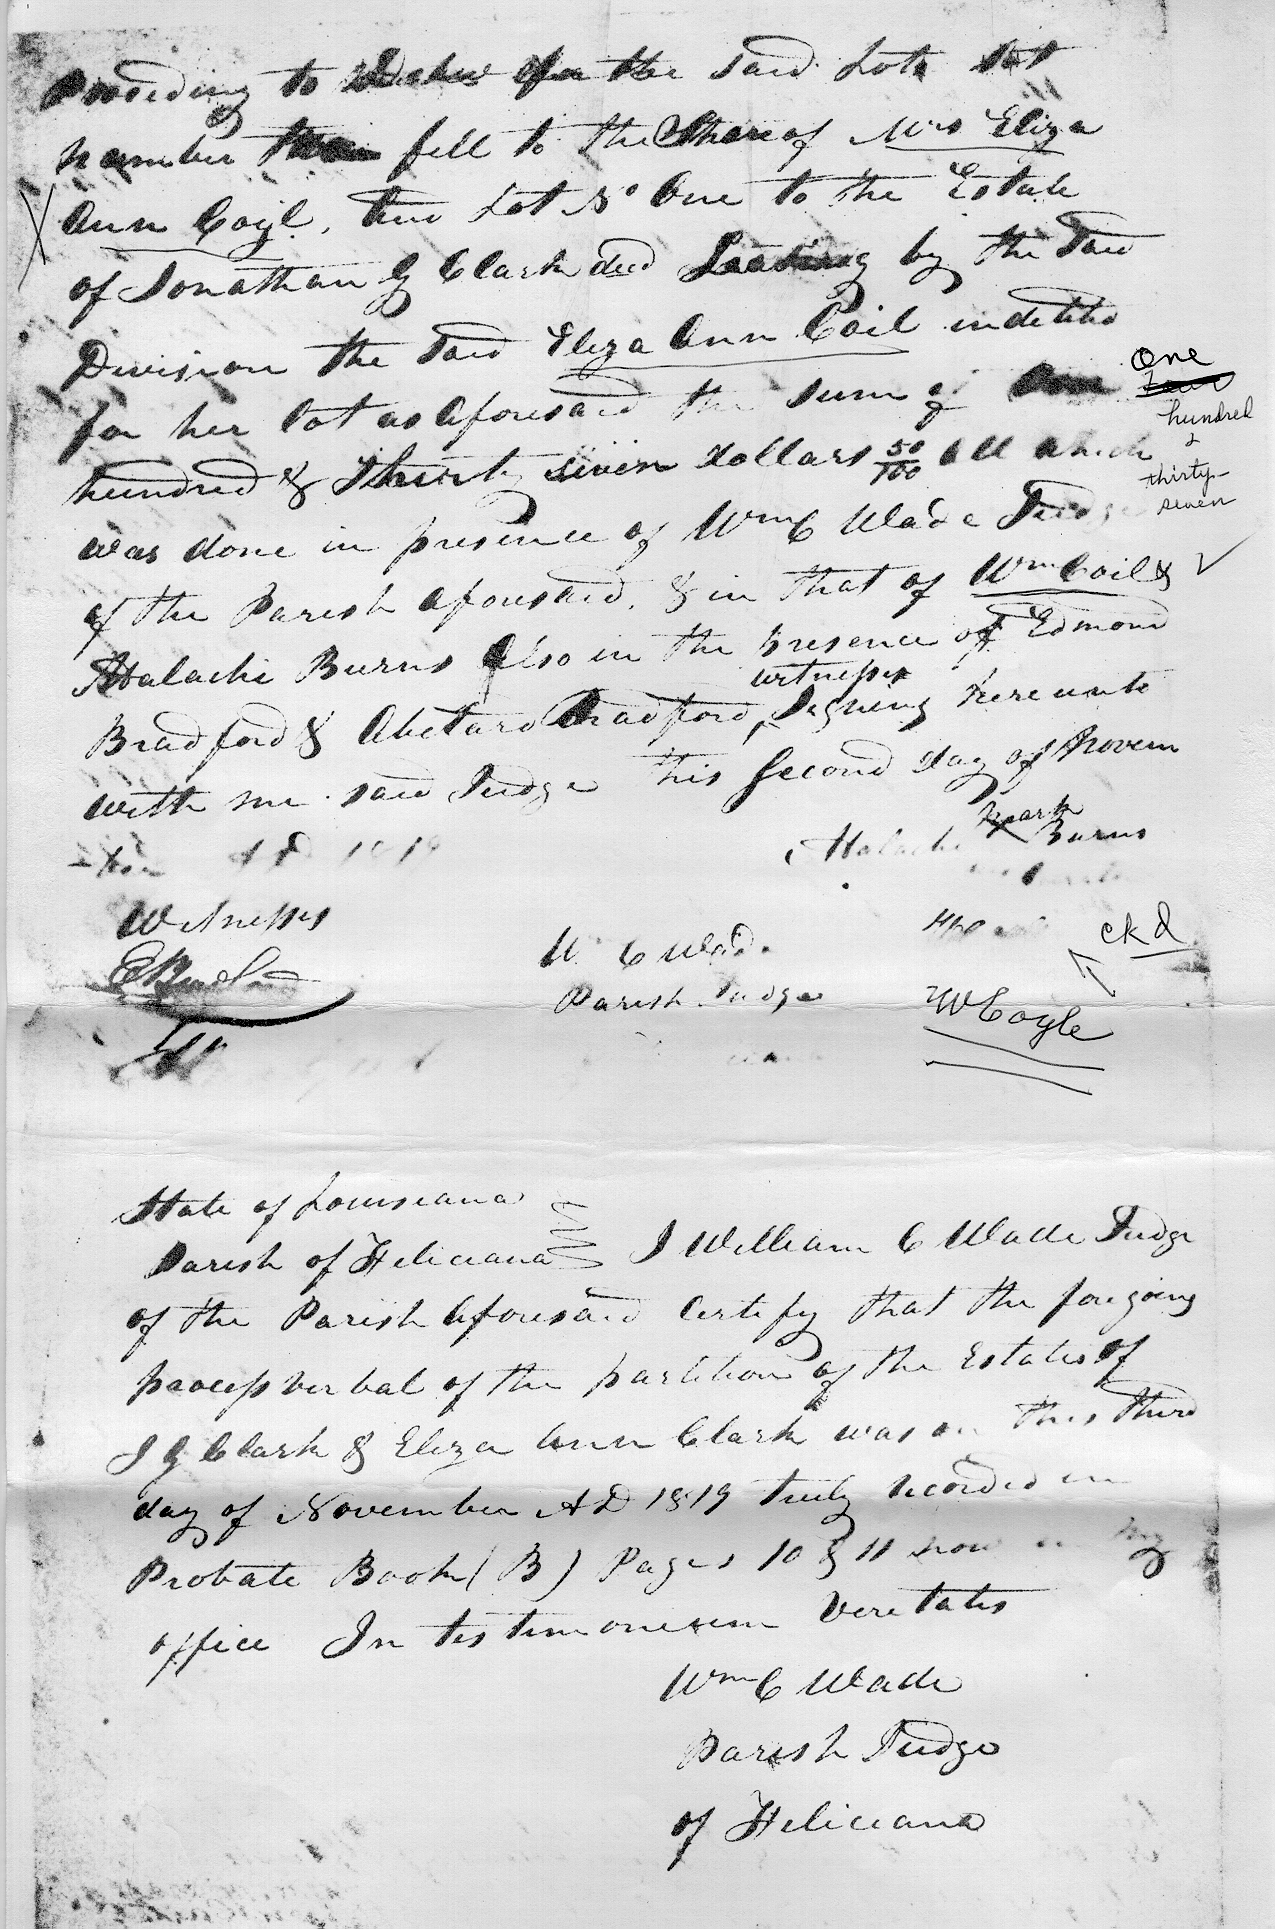 Proceding to Draw for the said Lots Lot
number two fell to the Share of Mrs Eliza
Ann Coyl, then Lot No One to the Estate
of Jonathan G Clark decd Leaving by the said
Division the said Eliza Ann Coil indetted
for her lot as aforesaid the sum of One
hundred & Thirty seven dollars 50/100 all which
One
hundred
&
thirty-
seven
was done in presence of Wm C Wade Judge
of the Parish aforesaid, & in that of Wm Coil &
Malachi Burns Also in the presence of Edmond
witnesses
Bradford & Abetard Bradford, Signing hereunto
with me said Judge this Second day of Novem
-ber A D 1819
mark
Malachi X Burns
Witnesses
E Bradford
W C Wade
Parish Judge
ckd
W Coyle
State of Louisiana
Parish of Feliciana I William C Wade Judge
of the Parish aforesaid Certify that the foregoing
process verbal of the partition of the Estates of
J G Clark & Eliza Ann Clark was on this third
day of November A D 1819 truly recorded in
Probate Book (B) Pages 10 & 11 now in my
office In testimonium Veretatis
Wm C Wade
Parish Judge
of Feliciana